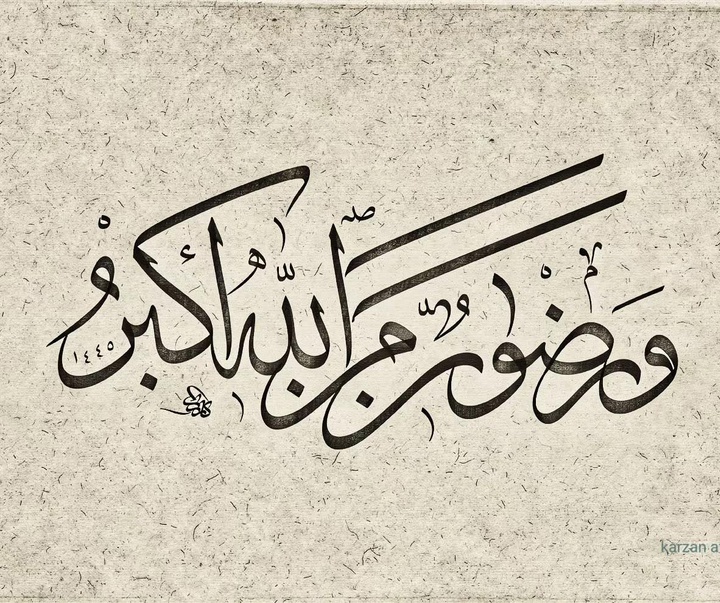 ورضوان من الله أكبر
١٤٤٥
karzan